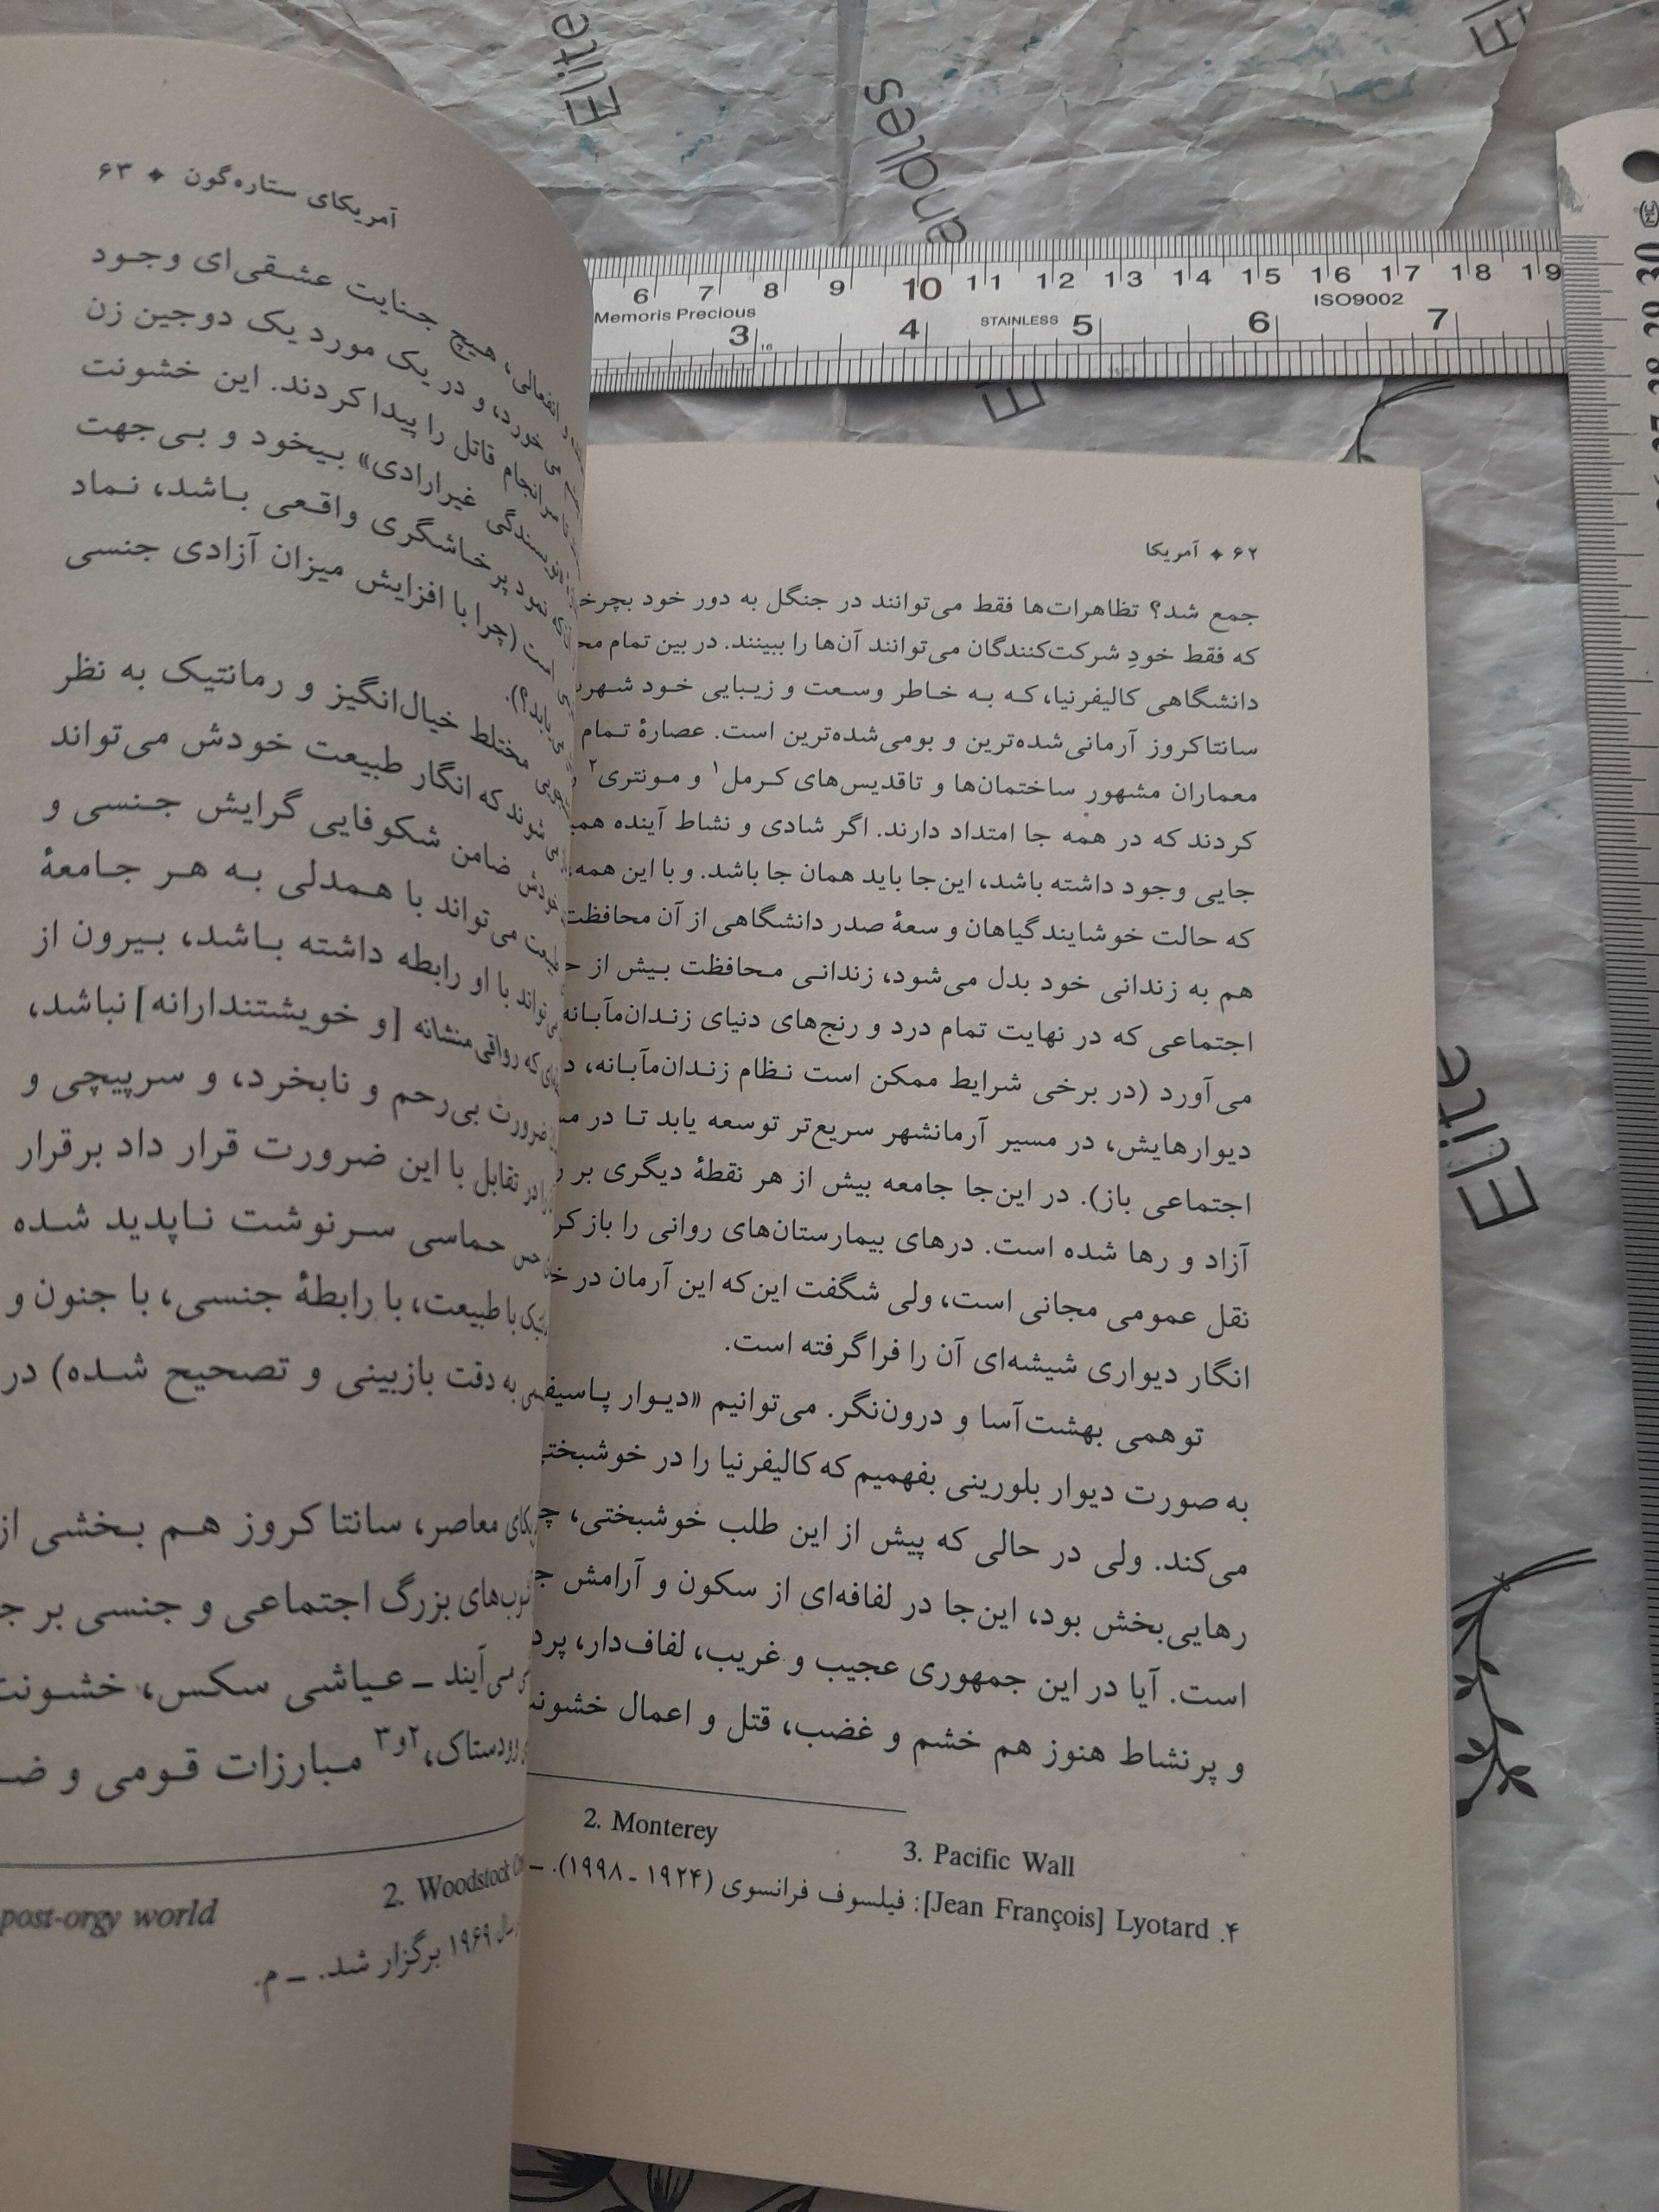 ۶۲ ✦ آمریکا
جمع شد؟ تظاهرات‌ها فقط می‌توانند در جنگل به دور خود
که فقط خودِ شرکت‌کنندگان می‌توانند آن‌ها را ببینند. در بین تمام
دانشگاهی کالیفرنیا، که به خاطر وسعت و زیبایی خود
سانتاکروز آرمانی‌شده‌ترین و بومی‌شده‌ترین است. عصارهٔ تمام
معماران مشهور ساختمان‌ها و تاقدیس‌های کرمل۱ و مونتری۲
کردند که در همه جا امتداد دارند. اگر شادی و نشاط آینده
جایی وجود داشته باشد، این‌جا باید همان جا باشد. و با این همه،
که حالت خوشایند گیاهان و سعهٔ صدر دانشگاهی از آن محافظت
هم به زندانی خود بدل می‌شود، زندانی محافظت بیش از
اجتماعی که در نهایت تمام درد و رنج‌های دنیای زندان‌مآبانه
می‌آورد (در برخی شرایط ممکن است نظام زندان‌مآبانه،
دیوارهایش، در مسیر آرمانشهر سریع‌تر توسعه یابد تا در
اجتماعی باز). در این‌جا جامعه بیش از هر نقطهٔ دیگری بر
آزاد و رها شده است. درهای بیمارستان‌های روانی را باز
نقل عمومی مجانی است، ولی شگفت این‌که این آرمان در
انگار دیواری شیشه‌ای آن را فراگرفته است.
توهمی بهشت‌آسا و درون‌نگر. می‌توانیم «دیوار
به صورت دیوار بلورینی بفهمیم که کالیفرنیا را در
می‌کند. ولی در حالی که پیش از این طلب خوشبختی،
رهایی‌بخش بود، این‌جا در لفافه‌ای از سکون و آرامش
است. آیا در این جمهوری عجیب و غریب، لفاف‌دار،
و پرنشاط هنوز هم خشم و غضب، قتل و اعمال
2. Monterey
3. Pacific Wall
۴. [Jean François] Lyotard: فیلسوف فرانسوی (۱۹۲۴ ـ ۱۹۹۸). ـ
آمریکای ستاره‌گون ✦ ۶۳
انفعالی، هیچ جنایت عشقی‌ای وجود
خورد، و در یک مورد یک دوجین زن
سرانجام قاتل را پیدا کردند. این خشونت
نویسندگی غیرارادی» بیخود و بی‌جهت
نمود پرخاشگری واقعی باشد، نماد
است (چرا با افزایش میزان آزادی جنسی
یابد؟).
مختلط خیال‌انگیز و رمانتیک به نظر
شوند که انگار طبیعت خودش می‌تواند
خودش ضامن شکوفایی گرایش جنسی و
می‌تواند با همدلی به هر جامعهٔ
تواند با او رابطه داشته باشد، بیرون از
که رواقی‌منشانه [و خویشتندارانه] نباشد،
ضرورت بی‌رحم و نابخرد، و سرپیچی و
در تقابل با این ضرورت قرار داد برقرار
حس حماسی سرنوشت ناپدید شده
با طبیعت، با رابطهٔ جنسی، با جنون و
به دقت بازبینی و تصحیح شده) در
معاصر، سانتا کروز هم بخشی از
بزرگ اجتماعی و جنسی بر
می‌آیند ـ عیاشی سکس، خشونت
وودستاک،۲و۳ مبارزات قومی و
post-orgy world
2. Woodstock
سال ۱۹۶۹ برگزار شد. ـ م.
6 7 8 9 10 11 12 13 14 15 16 17 18 19
Memoris Precious
STAINLESS
ISO9002
3 4 5 6 7
16
30
Elite
andles
Elite